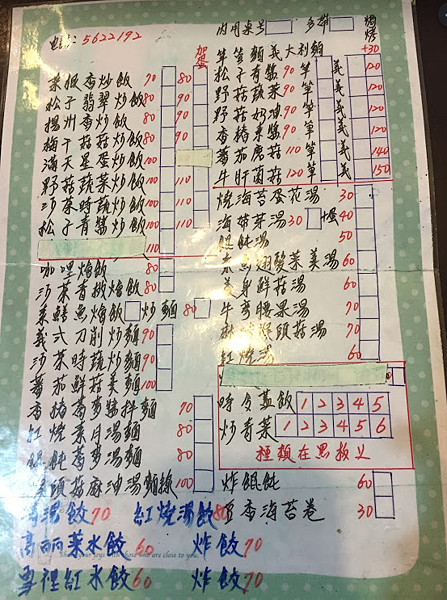 電話 5622192
加蛋
菜脯香炒飯 70 80
松子翡翠炒飯 80 90
揚州香炒飯 80 90
梅干菇菇炒飯 80 90
滿天星蛋炒飯 100
野菇蔬菜炒飯 100 110
沙茶時蔬炒飯 100 110
松子青醬炒飯 100 110
110
咖哩燴飯 80
沙茶香椒燴飯 80
燴飯 炒麵 80
義式刀削炒麵 90
沙茶時蔬炒麵 90
蕃茄鮮菇素麵 100
香椿蔓麥醬拌麵 70
紅燒素肉湯麵 80
餛飩蔓麥湯麵 80
猴頭菇麻油湯麵線 100
內用桌号 外帶
焗烤 +30
筆管麵 義大利麵
松子青醬 90 筆 義 120
野菇蔬菜 90 筆 義 120
野菇奶油 90 筆 義 120
香椿素醬 90 筆 義 120
蕃茄蘑菇 110 筆 義 140
牛肝菌菇 120 筆 義 150
燒海苔蛋花湯 30
海帶芽湯 30 +蛋 40
餛飩湯 50
素魚翅酸菜羹湯 60
鮮菇湯 60
牛蒡腰果湯 70
猴頭菇湯 70
紅燒湯 60
時令蓋飯 1 2 3 4 5
炒青菜 1 2 3 4 5 6
種類在黑板上
炸餛飩 60
豆香海苔卷 30
湯餃 70 紅燒湯餃 80
高麗菜水餃 60 炸餃 70
雪裡紅水餃 60 炸餃 70